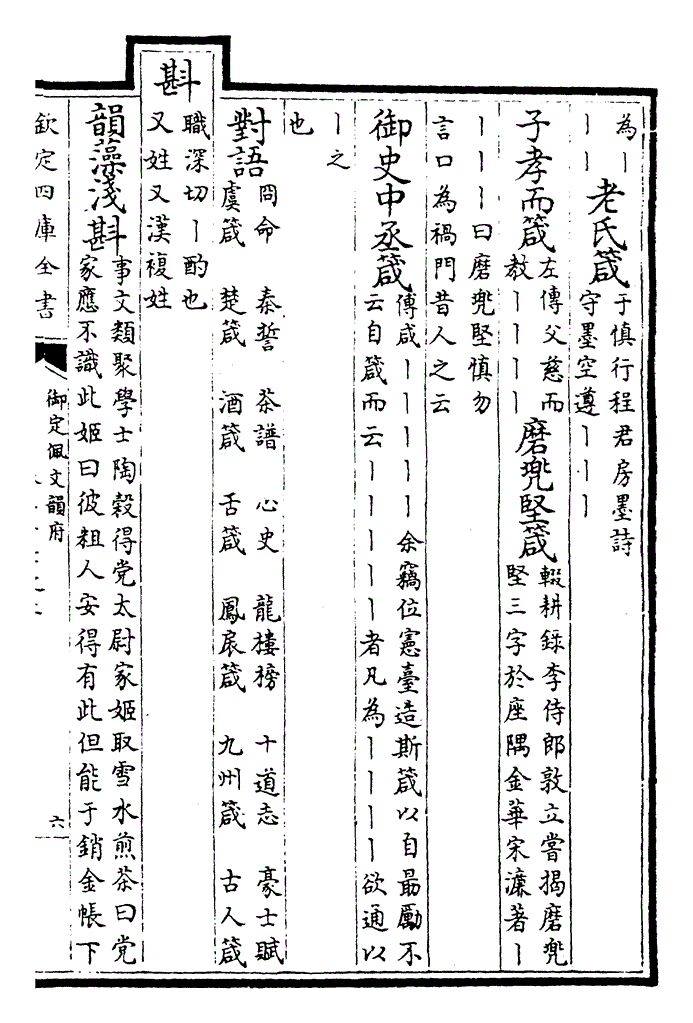 為｜
｜｜
老氏箴
于慎行程君房墨詩
守墨空遵｜｜｜
子孝而箴
左傳父慈而
教｜｜｜｜
磨兜堅箴
輟耕錄李侍郎敦立嘗揭磨兜
堅三字於座隅金華宋濂著｜
｜｜｜曰磨兜堅慎勿
言口為禍門昔人之云
御史中丞箴
傅咸｜｜｜｜｜余竊位憲臺造斯箴以自最勵不
云自箴而云｜｜｜｜｜者凡為｜｜｜｜｜欲通以
｜之
也
對語
冏命　秦誓　茶譜　心史　龍樓榜　十道志　豪士賦
虞箴　楚箴　酒箴　舌箴　鳳扆箴　九州箴　古人箴
斟
職深切｜酌也
又姓又漢複姓
韻藻
淺斟
事文類聚學士陶穀得党太尉家姬取雪水煎茶曰党
家應不識此姬曰彼粗人安得有此但能于銷金帳下
欽定四庫全書
御定佩文韻府
六